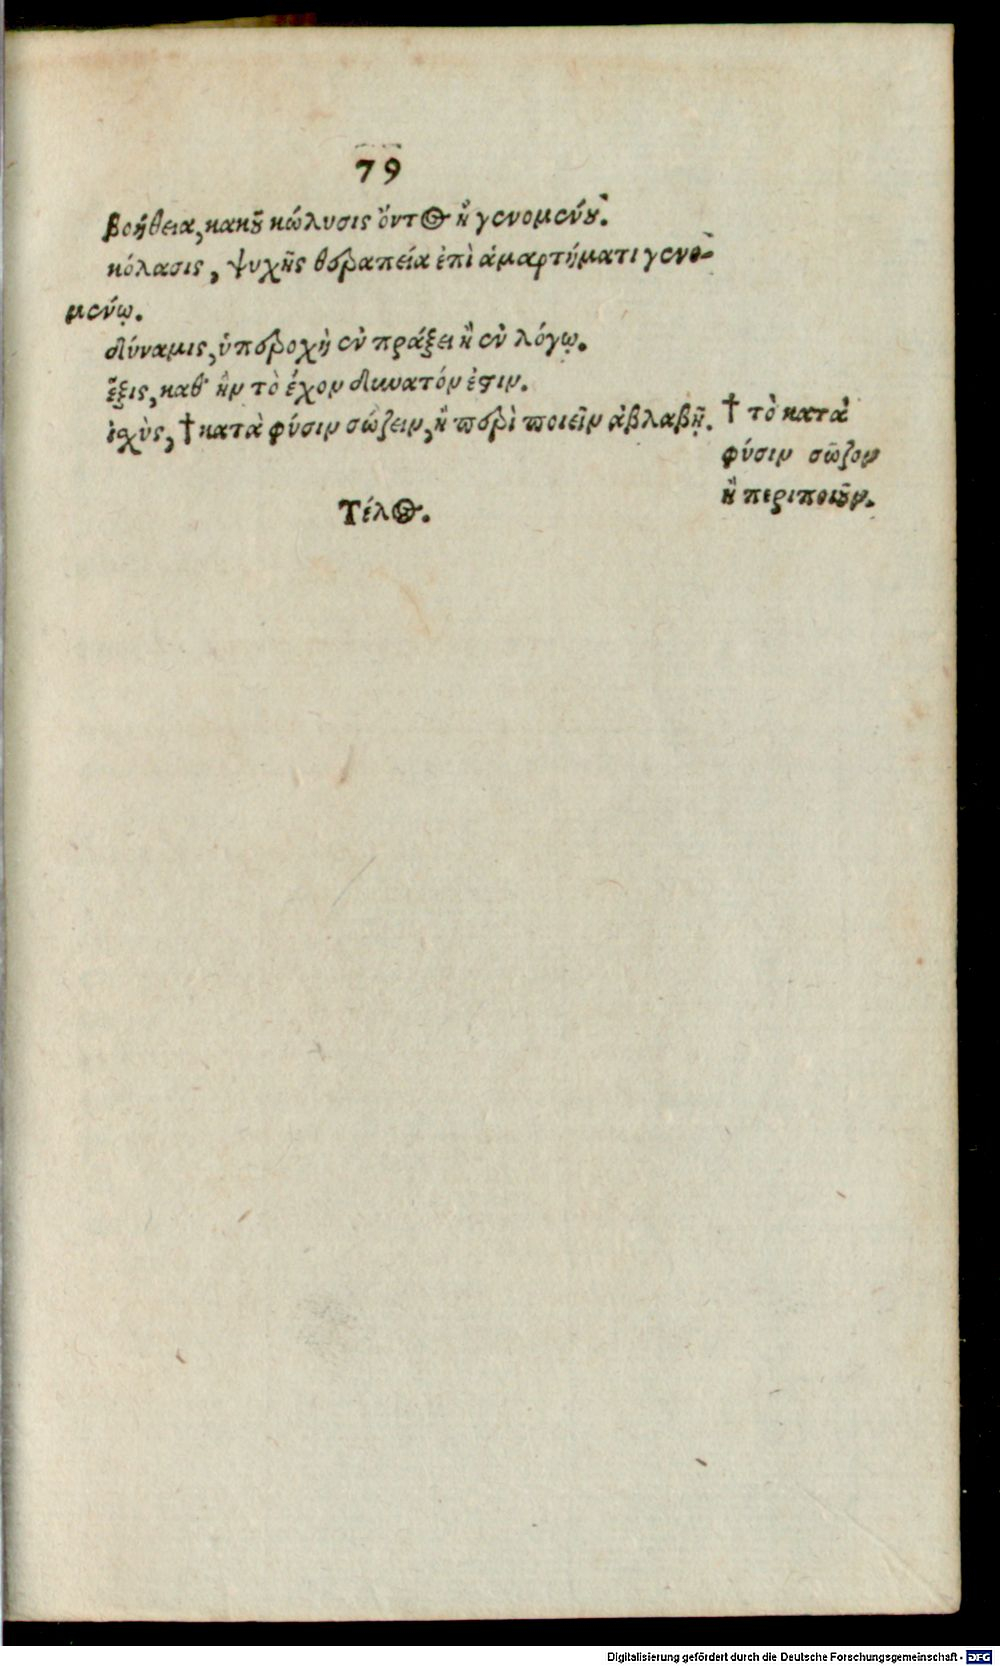 79
βοήθεια, κακοῦ κώλυσις ὄντος ἢ γενομένου.
κόλασις, ψυχῆς θεραπεία ἐπὶ ἁμαρτήματι γενο-
μένῳ.
δύναμις, ὑπεροχὴ ἐν πράξει ἢ ἐν λόγῳ.
ἕξις, καθ' ἣν τὸ ἔχον δυνατόν ἐστιν.
ἰσχὺς, † κατὰ φύσιν σώζειν, ἢ περὶ ποιεῖν ἀβλαβῆ.
† τὸ κατὰ
φύσιν σῶζον
ἢ περιποιοῦν.
Τέλος.
Digitalisierung gefördert durch die Deutsche Forschungsgemeinschaft - DFG